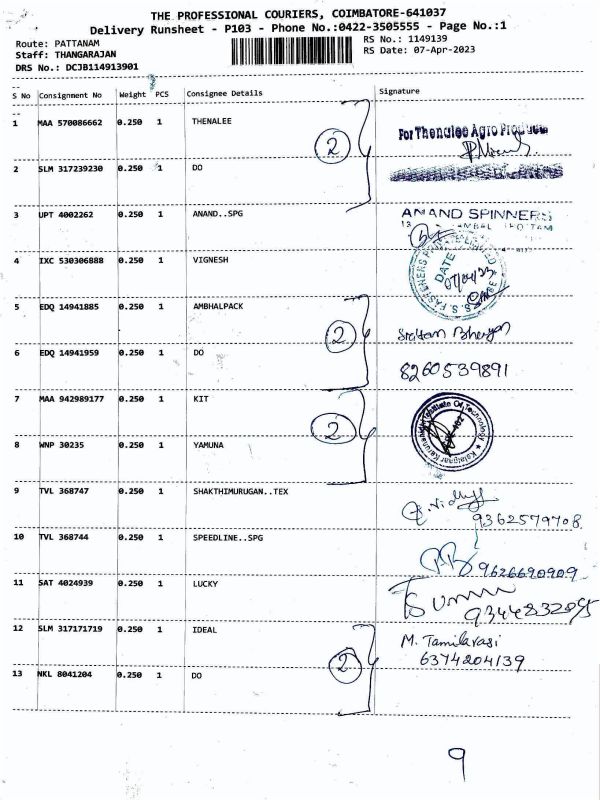 THE PROFESSIONAL COURIERS, COIMBATORE-641037
Delivery Runsheet - P103 - Phone No.:0422-3505555 - Page No.:1
Route: PATTANAM RS No.: 1149139
Staff: THANGARAJAN RS Date: 07-Apr-2023
DRS No.: DCJB114913901
S No Consignment No Weight PCS Consignee Details Signature
1 MAA 570086662 0.250 1 THENALEE For Thenalee Agro Products
2
2 SLM 317239230 0.250 1 DO
3 UPT 4002262 0.250 1 ANAND..SPG ANAND SPINNERS
4 IXC 530306888 0.250 1 VIGNESH S.S. FASTENERS PRIVATE LIMITED DATE
07/04/23
5 EDQ 14941885 0.250 1 AMBHALPACK
2
6 EDQ 14941959 0.250 1 DO 8260539891
7 MAA 942989177 0.250 1 KIT Kalaignar Karunanidhi Institute Of Technology
2
8 WNP 30235 0.250 1 YAMUNA
9 TVL 368747 0.250 1 SHAKTHIMURUGAN..TEX
9362579708
10 TVL 368744 0.250 1 SPEEDLINE..SPG
9626690909
11 SAT 4024939 0.250 1 LUCKY
9344832095
12 SLM 317171719 0.250 1 IDEAL M. Tamilarasi
2 6374204139
13 NKL 8041204 0.250 1 DO
9